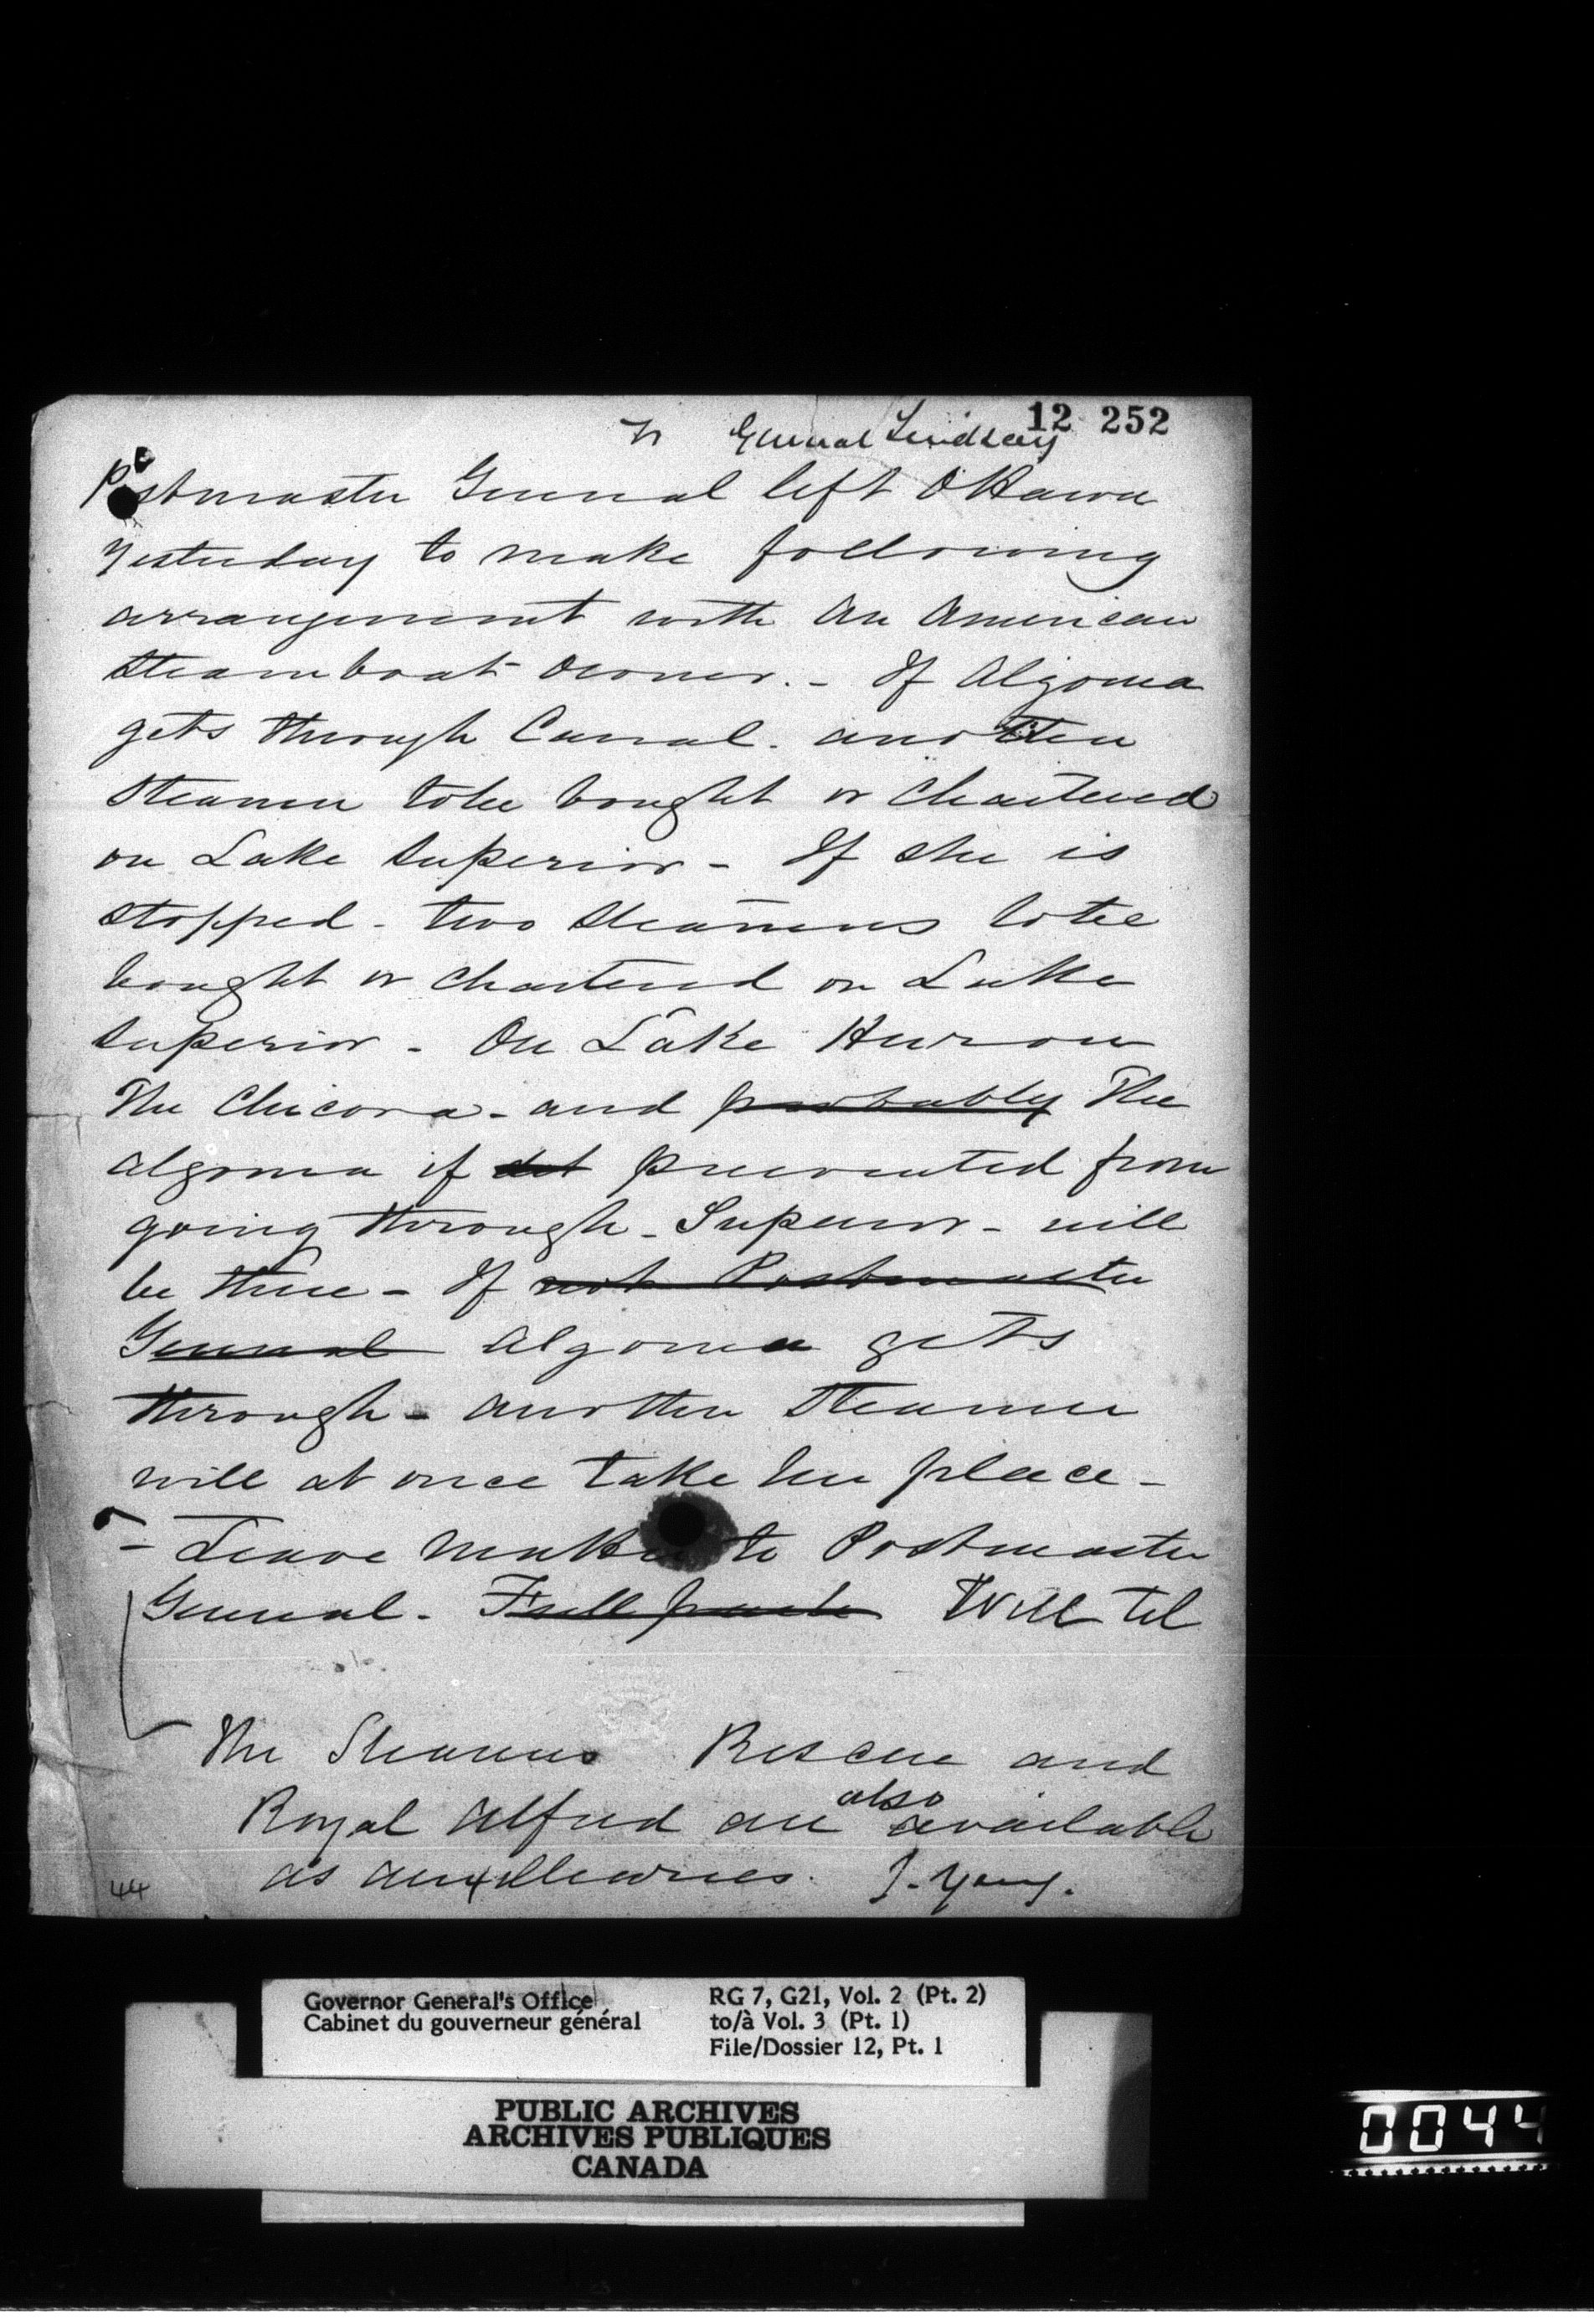 12 252
To General Lindsay
Postmaster General left Ottawa
yesterday to make following
arrangement with an American
Steamboat owner. - If Algoma
gets through Canal. another
Steamer to be bought or Chartered
on Lake Superior - If she is
stopped - two Steamers to be
bought or chartered on Lake
Superior - On Lake Huron
The Chicora - and probably The
Algoma if prevented from
going through - Superior - will
be there - If not Postmaster
General Algoma gets
through - another Steamer
will at once take her place -
- Leave matter to Postmaster
General. - Will tel
The Steamers Rescue and
also
Royal Alfred are available
as auxilliaries. J. Young.
44
Governor General's Office
Cabinet du gouverneur général
RG 7, G21, Vol. 2 (Pt. 2)
to/à Vol. 3 (Pt. 1)
File/Dossier 12, Pt. 1
PUBLIC ARCHIVES
ARCHIVES PUBLIQUES
CANADA
0044